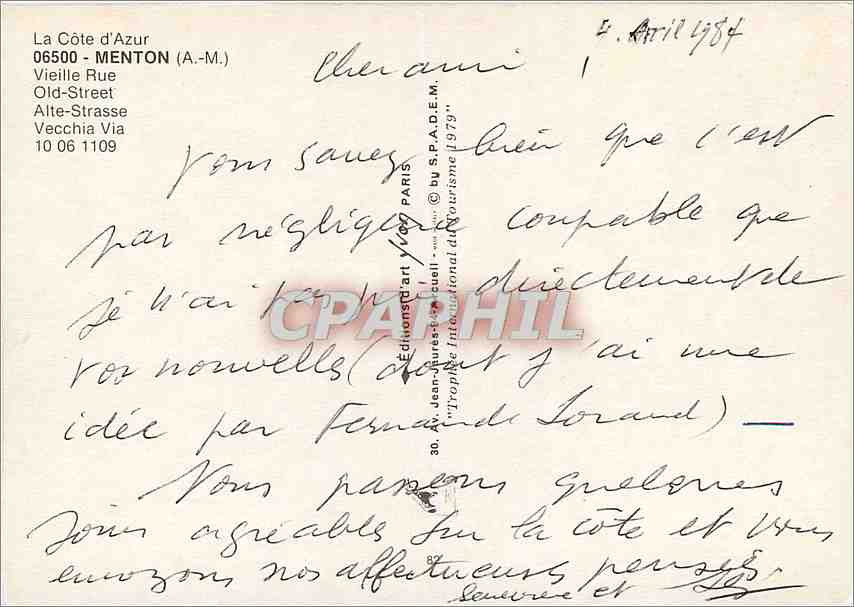 La Côte d'Azur
06500 - MENTON (A.-M.)
Vieille Rue
Old-Street
Alte-Strasse
Vecchia Via
10 06 1109
4. Avril 1984
Cher ami,
Vous savez bien que c'est
par négligence coupable que
je n'ai pas pris directement de
vos nouvelles (dont j'ai une
idée par Fernande Lorand) —
Nous passons quelques
jours agréables sur la côte et vous
envoyons nos affectueuses pensées
Geneviève et
Éditions d'art YVON PARIS
30. Av. Jean-Jaurès-94-Arcueil - © by S.P.A.D.E.M.
"Trophée International du Tourisme 1979"
CPAPHIL